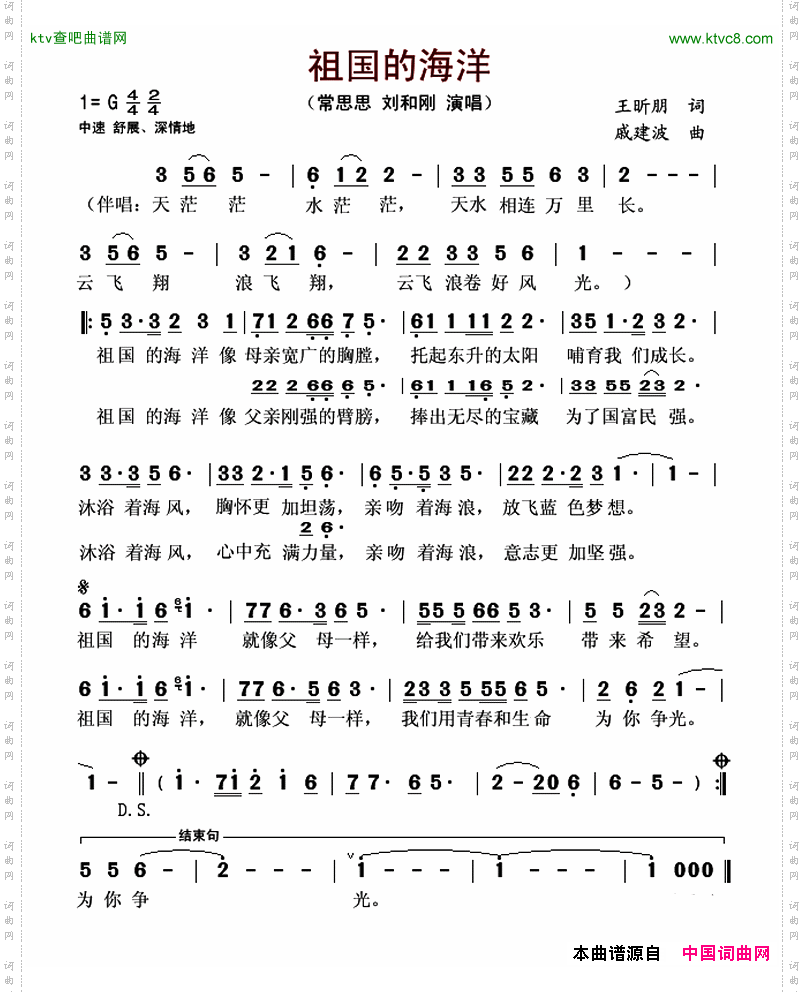 ktv查吧曲谱网 www.ktvc8.com
祖国的海洋
1=G 4/4 2/4 （常思思 刘和刚 演唱） 王昕朋 词
中速 舒展、深情地 戚建波 曲
3 56 5 - | 6 12 2 - | 33 55 63 | 2 - - - |
（伴唱：天茫茫 水茫茫， 天水相连万里长。
3 56 5 - | 3 21 6 - | 22 33 5 6 | 1 - - - |
云飞翔 浪飞翔， 云飞浪卷好风光。）
‖: 5 3·3 2 3 1 | 71 2 66 7 5· | 61 1 11 2 2· | 35 1·2 5 5· |
祖国的海洋像 母亲宽广的胸膛， 托起东升的太阳 哺育我们成长。
22 2 66 6 5· | 61 1 16 5 2· | 33 55 23 2 |
祖国的海洋像 父亲刚强的臂膀， 捧出无尽的宝藏 为了国富民强。
3 3·3 5 6· | 33 2·1 5 6· | 6 5·5 3 5· | 22 2·2 3 1· | 1 - |
沐浴着海风， 胸怀更加坦荡， 亲吻着海浪， 放飞蓝色梦想。
2 6·
沐浴着海风， 心中充满力量， 亲吻着海浪， 意志更加坚强。
6 1·1 6 1· | 77 6·3 6 5· | 55 5 66 5 3· | 5 5 23 2 - |
祖国的海洋 就像父母一样， 给我们带来欢乐 带来希望。
6 1·1 6 1· | 77 6·5 6 3· | 23 3 5 55 6 5· | 2 6 2 1 - |
祖国的海洋， 就像父母一样， 我们用青春和生命 为你争光。
1 - ‖ ( 1· 71 2 1 6 | 7 7· 6 5· | 2 - 20 6 | 6 - 5 - ) :‖
D.S.
结束句
5 5 6 - | 2 - - - | 1 - - - | 1 - - - | 1 000 ‖
为你争 光。
本曲谱源自 中国词曲网
词曲网